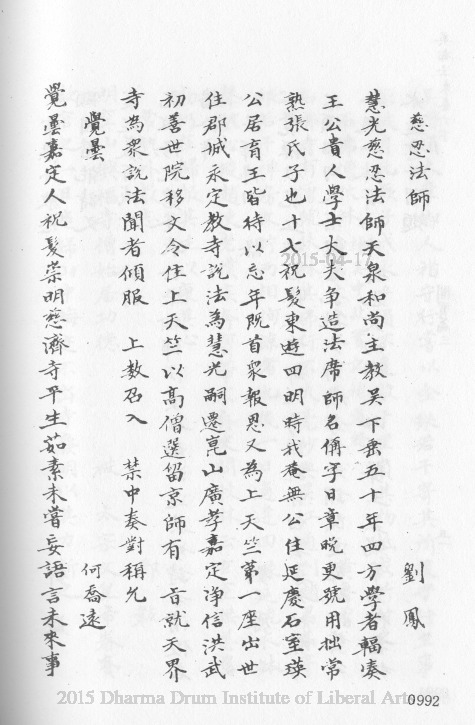 慈忍法師
劉鳳
慧光慈忍法師天泉和尚主教吳下垂五十年四方學者輻湊
王公貴人學士大夫爭造法席師名偁字日章晚更號用拙常
熟張氏子也十七祝髮東遊四明時我菴無公住延慶石室瑛
公居育王皆待以忘年既首眾報恩又為上天竺第一座出世
住郡城永定教寺說法為慧光嗣遷崑山廣孝嘉定淨信洪武
初善世院移文令住上天竺以高僧選留京師有 旨就天界
寺為眾說法聞者傾服 上教召入 禁中奏對稱允
覺曇
何喬遠
覺曇嘉定人祝髮崇明慈濟寺平生茹素未嘗妄語言未來事
2015-04-17
2015 Dharma Drum Institute of Liberal Arts
0992